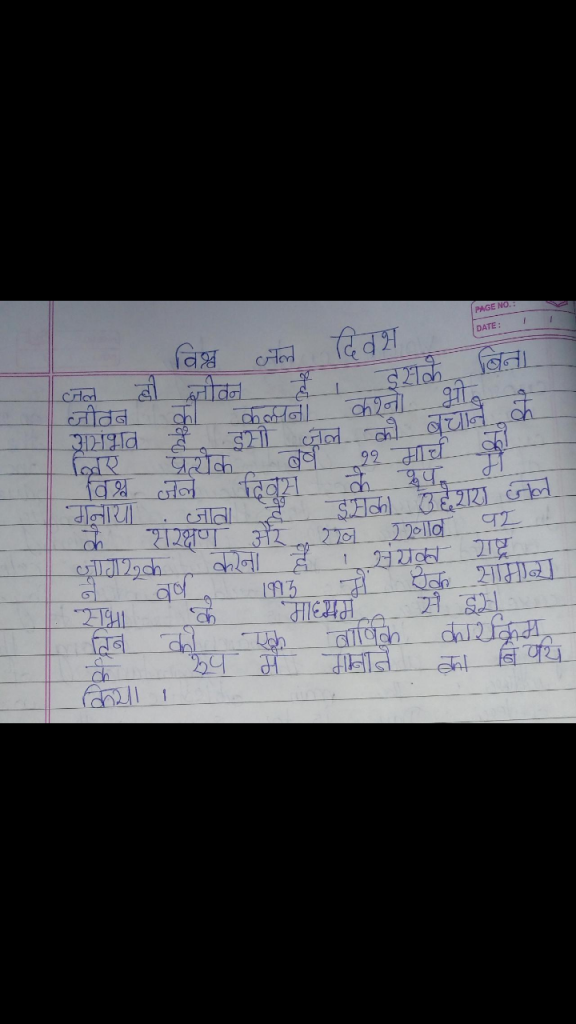 PAGE NO.:
DATE:
विश्व जल दिवस
जल ही जीवन है । इसके बिना
जीवन की कल्पना करना भी
असंभव है इसी जल को बचाने के
लिए प्रत्येक वर्ष २२ मार्च को
विश्व जल दिवस के रूप में
मनाया जाता है इसका उद्देश्य जल
के संरक्षण और रख रखाव पर
जागरूक करना है । संयक्त राष्ट्र
ने वर्ष 1993 में एक सामान्य
सभा के माध्यम से इस
दिन को एक वार्षिक कार्यक्रम
के रूप में मनाने का निर्णय
किया ।